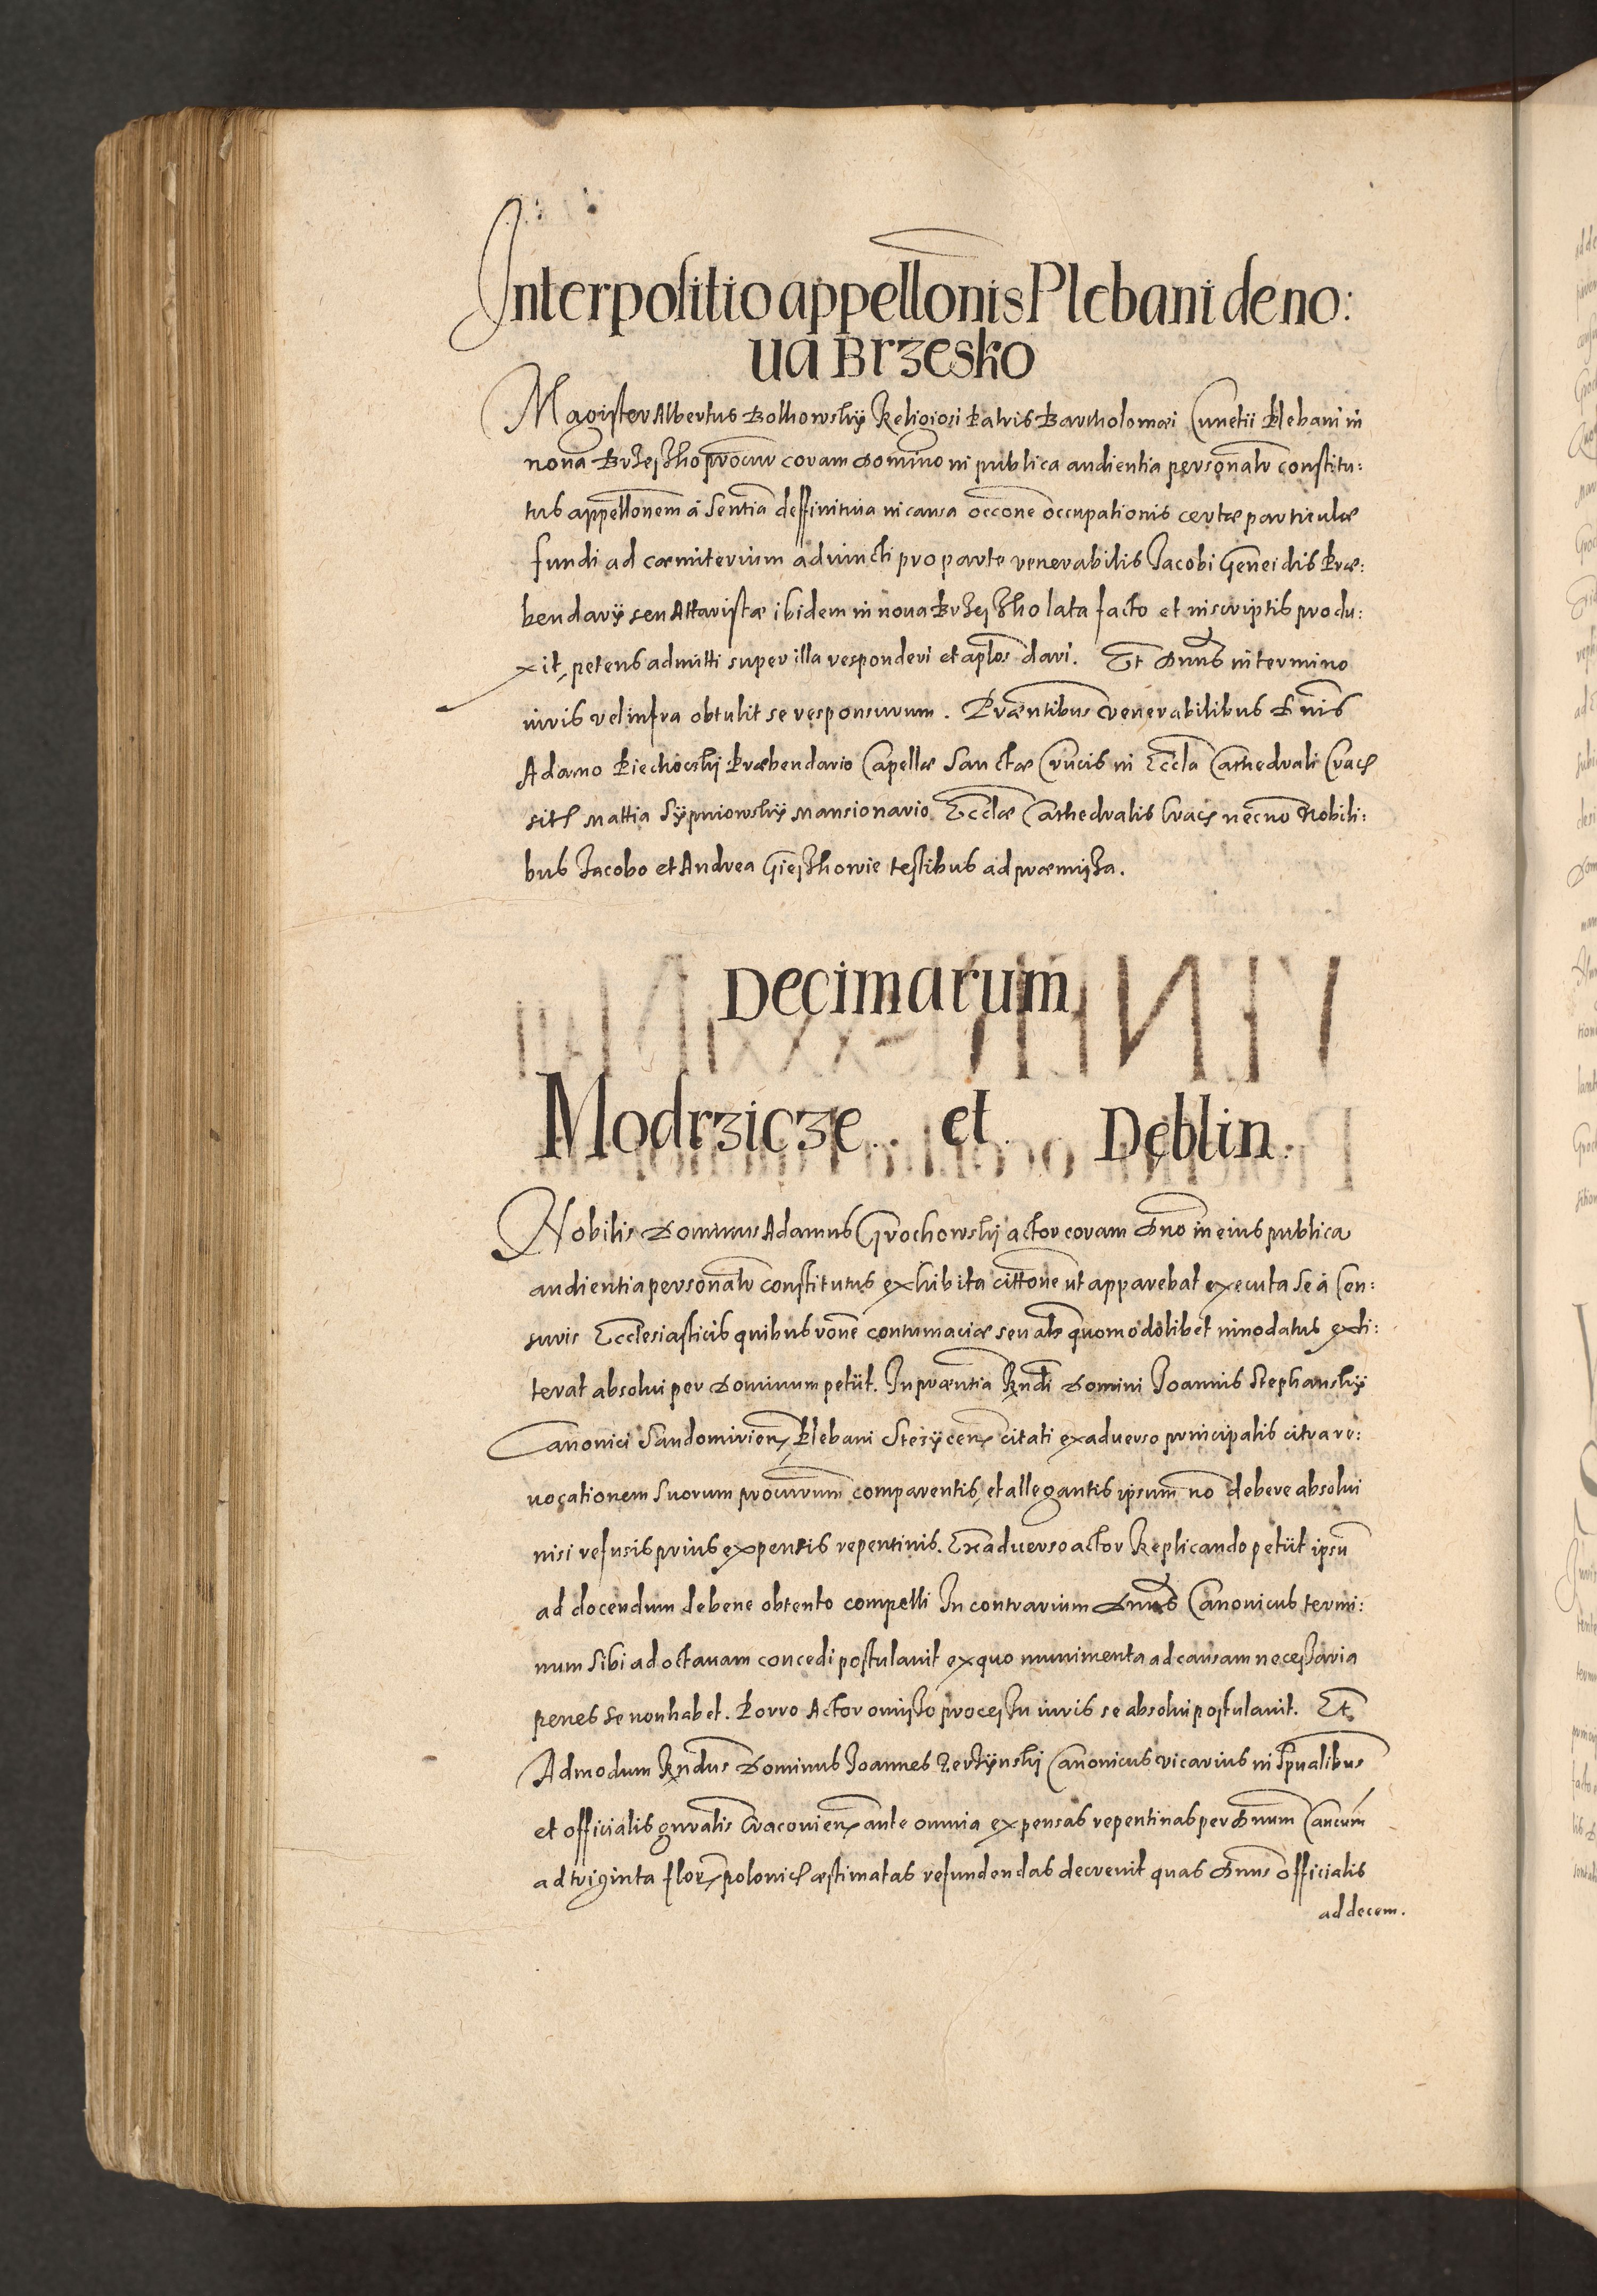 Interpositio appellonis Plebani de no:
ua Brzesko
Magister Albertus Bolkowsky Religiosi Patris Bartholomæi Cunetii Plebani in
noua Brzeszko procur coram Domino in publica audientia personalr constitu:
tus appellonem à Sentia deffinitiua in causa occone occupationis certæ particulæ
fundi ad cæmiterium adiuncti pro parte venerabilis Jacobi Præ:
bendarÿ seu Altaristæ ibidem in noua Brzeszko lata facto et in scriptis produ:
xit, petens admitti super illa responderi et aplos dari. Et Dnus in termino
iuris vel infra obtulit se responsurum. Præntibus venerabilibus Dnis
Adamo Piechowski Præbendario Capellæ Sanctæ Crucis in Eccla Cathedrali Crac
sitę Mattia Sypniowsky Mansionario Ecclæ Cathedralis Crac necno Nobili:
bus Jacobo et Andrea testibus ad præmissa.
Decimarum
Modrzicze et Dęblin.
Nobilis Dominus Adamus Grochowsky actor coram Dno in eius publica
audientia personalr constitutus exhibita cittone ut apparebat executa se à Cen:
suris Ecclesiasticis quibus rone contumaciæ seu als quomodolibet innodatus exti:
terat absolui per Dominum petiit. In præntia Rndi Domini Joannis Stephansky
Canonici Sandomirien Plebani Stezycen citati ex aduerso principalis citra re:
uocationem Suorum procurrum comparentis, et allegantis ipsum no debere absolui
nisi refusis prius expensis repentinis. Ex aduerso actor Replicando petiit ipsu
ad docendum de bene obtento compelli In contrarium Dnus Canonicus termi:
num Sibi ad octauam concedi postulauit ex quo munimenta ad causam necessaria
penes se non habet. Porro Actor omisso processu iuris se absolui postulauit. Et
Admodum Rndus Dominus Joannes Canonicus Vicarius in Spualibus
et officialis gnralis Cracouien ante omnia expensas repentinas per Dnum Cancum
ad triginta flor polonic æstimatas refundendas decreuit quas Dnus officialis
ad decem.